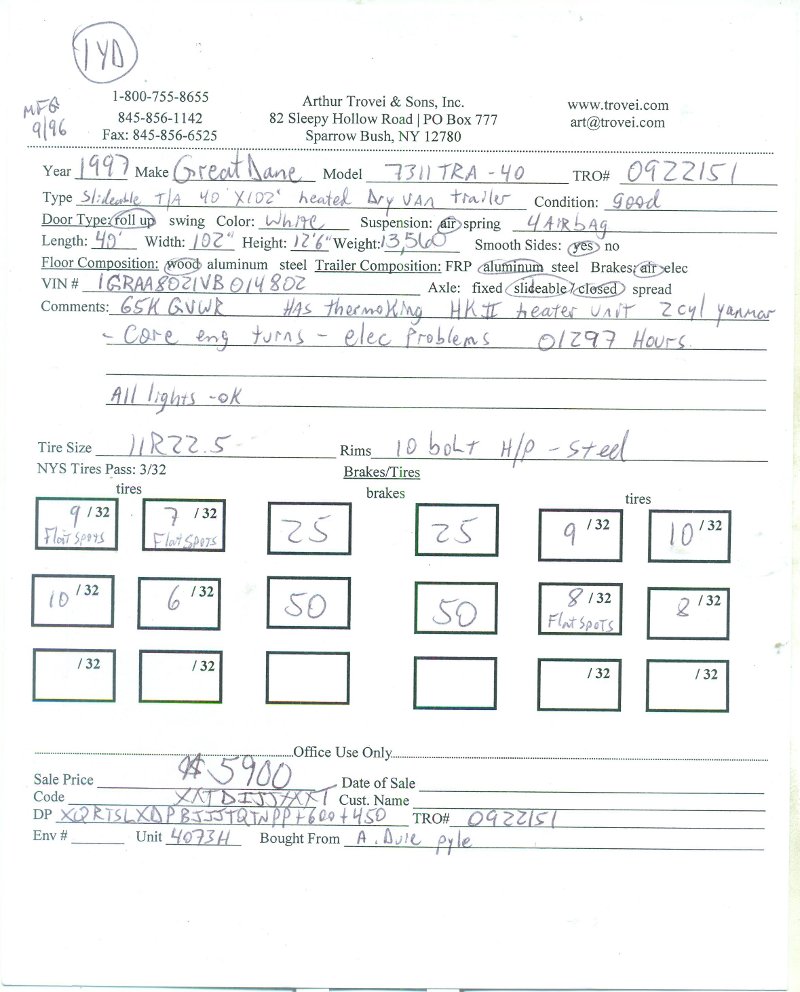 1YD
MFG 9/96
1-800-755-8655
845-856-1142
Fax: 845-856-6525
Arthur Trovei & Sons, Inc.
82 Sleepy Hollow Road | PO Box 777
Sparrow Bush, NY 12780
www.trovei.com
art@trovei.com
Year 1997 Make Great Dane Model 7311TRA-40 TRO# 0922151
Type Slideable T/A 40' X102" heated Dry VAN trailer Condition: good
Door Type: roll up swing Color: White Suspension: air spring 4 AirbAg
Length: 40' Width: 102" Height: 12'6" Weight: 13,560 Smooth Sides: yes no
Floor Composition: wood aluminum steel Trailer Composition: FRP aluminum steel Brakes: air elec
VIN # 1GRAA8021VB014802 Axle: fixed slideable/closed spread
Comments: 65K GVWR HAs thermoKing HK II heater unit 2 cyl yanmar
- Core eng turns - elec problems 01297 Hours.
All lights -OK
Tire Size 11R22.5 Rims 10 bolt H/P - Steel
NYS Tires Pass: 3/32 Brakes/Tires
tires brakes tires
9 /32 7 /32 25 25 9 /32 10 /32
Flat Spots Flat Spots
10 /32 6 /32 50 50 8 /32 8 /32
Flat Spots
/32 /32 /32 /32
Office Use Only
Sale Price $5900 Date of Sale
Code Cust. Name
DP +600+450 TRO# 0922151
Env # Unit 4073H Bought From A. Duie pyle